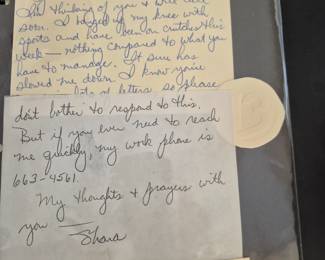 Am thinking of you & will call
soon. I banged up my knee with
sports and have been on crutches this
week — nothing compared to what you
have to manage. It sure has
slowed me down. I know you're
lots of letters, so please
don't bother to respond to this.
But if you ever need to reach
me quickly, my work phone is
663-4561.
My thoughts & prayers with
you —
Shara